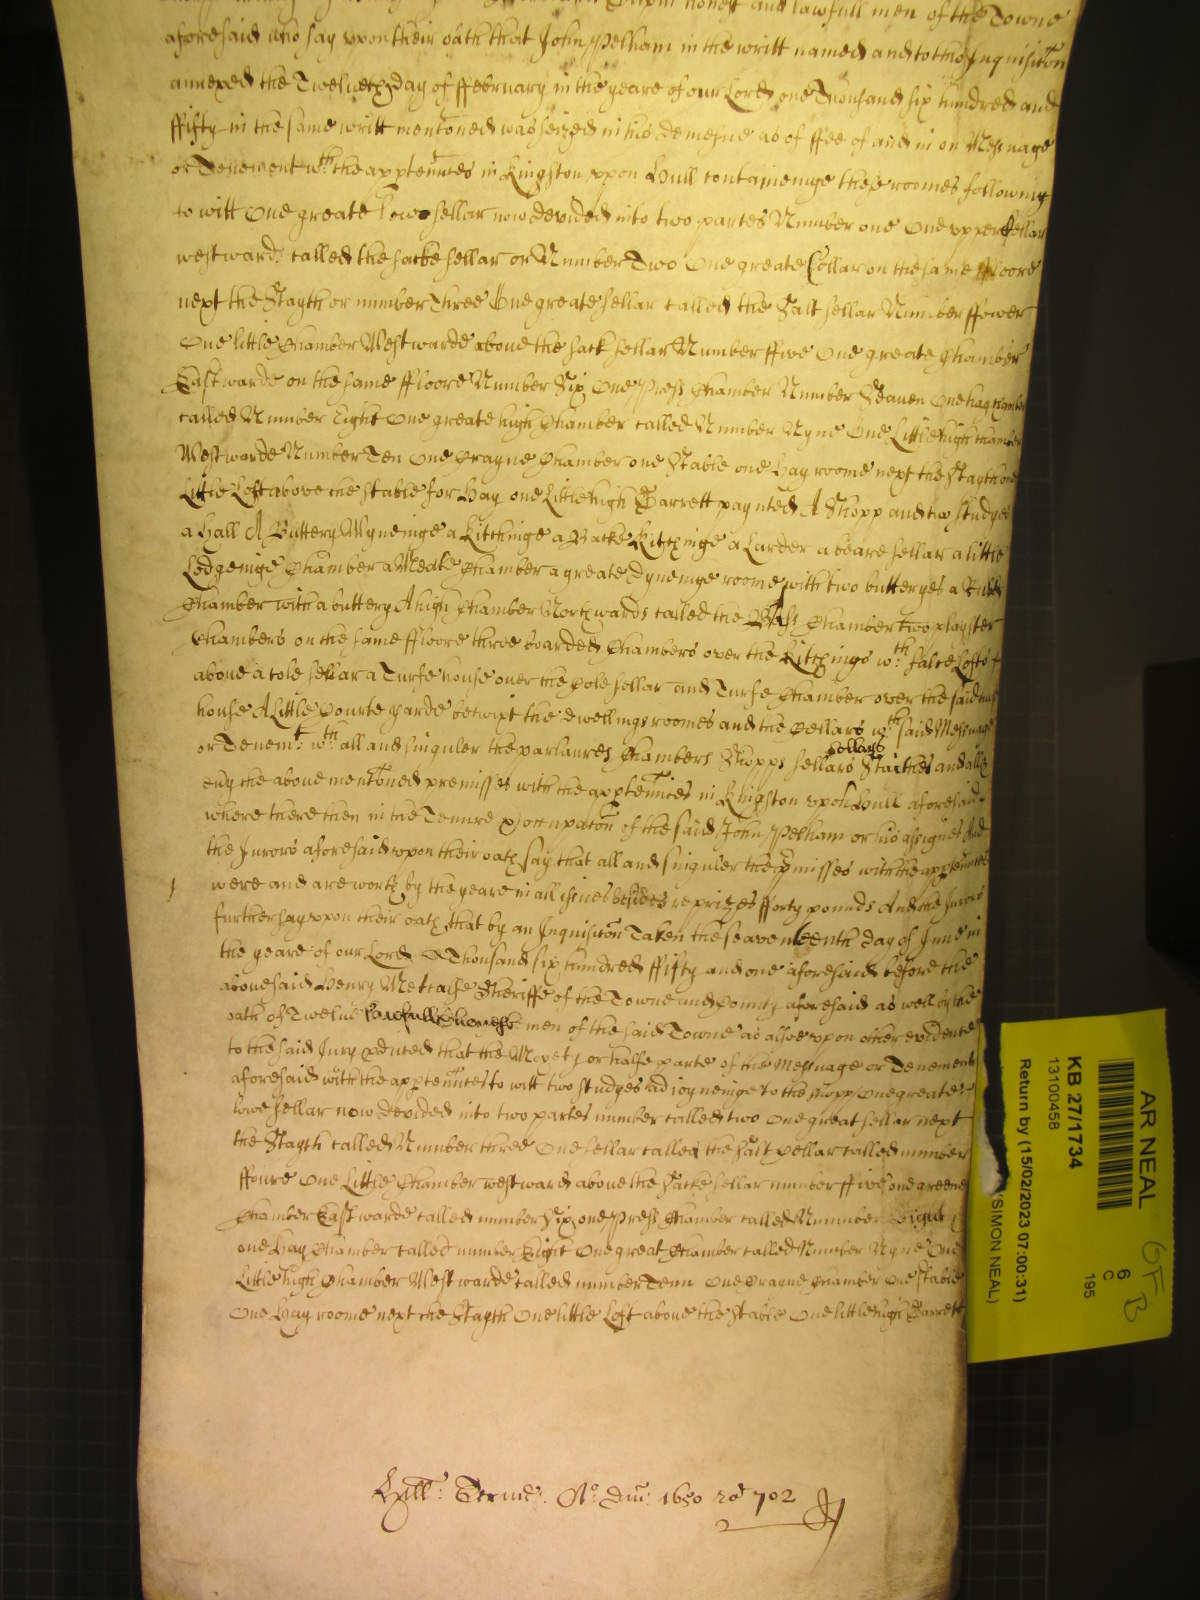 honest and lawfull men of the Towne
aforesaid who say upon their oath that John Pelham in the writt named and to this Inquisicon
annexed the Twelveth day of ffebruary in the yeare of our Lord one Thousand six hundred and
ffifty in the same writt menconed was seized in his demesne as of ffee of and in on Messuage
or Tenement wth the apptenn̄tes in Kingston upon Hull conteineinge these roomes following
to witt One greate lowe sellar now devided into two partes Number one One upper sellar
westward called the sacke sellar or Number Two One greate Cellar on the same ffloore
next the Stayth or number Three One greate sellar called the Salt sellar Number ffower
One little Chamber Westwarde above the sack sellar Number ffive One greate Chamber
Eastwarde on the same ffloore Number Six One Press Chamber Number Seaven One hay chamber
called Number Eight One greate high Chamber called Number Nyne One Little high chamber
Westwarde Number Ten One Crayne Chamber one Stable one Hay roome next the Stayth one
Little Loft above the stable for Hay one Little high Garrett paynted A Shopp and two studyes
a Hall A Buttery Wyneinge a Kitchinge a Backe Kitchinge a Larder a beare sellar a little
Lodgeinge Chamber a Meale Chamber a greate dyneinge roome with two butteryes a
Chamber with a buttery A high Chamber Northwards called the Chamber two playster
Chambers on the same ffloore three boarded Chambers over the Kitchings wth false Lofts
above a cole sellar a Turfe house over the Cole sellar and Turfe Chamber over the said turfe
house A Little Courte yarde betwixt the dwellings roomes and the Cellars wch said Messuage
or Tenemt wth all and singuler the parlaures Chambers Shopps sellars sollars Staithes and all
the above mencōned premisses with the apptenn̄tes in Kingston upon Hull aforesaid
where there then in the Tenure & occupacōn of the said John Pelham or his assignes And
the Jurors aforesaid upon their oath say that all and singuler the p̄misses with the apptenn̄tes
were and are worth by the yeare in all issues besides reprizes fforty pounds And the Jurors
further say upon their oath that by an Inquisicōn Taken the seaventeenth day of June in
the yeare of our Lord A Thousand six hundred ffifty and one aforesaid before the
abovesaid Henry Metcalfe Sheriffe of the Towne and County aforesaid as well by the
oath of Twelve lawfull & honest men of the said Towne as alsoe upon other evidence
to the said Jury p̄duced that the Moyety or halfe parte of the Messuage or Tenement
aforesaid with the apptenn̄tes to witt two studyes adioyneinge to the shopp One greate
lowe sellar now devided into two partes number called two one great sellar next
the Stayth called Number three One sellar called the salt Cellar called number
ffoure One Little Chamber westward above the Sacke sellar number ffive one greene
Chamber Eastwarde called number Six one Press Chamber called Number
one Hay Chamber called number Eight One great Chamber called Number Nyne One
Little high Chamber Westwarde called number Tenn One Crayne Chamber One Stable
One Hay roome next the Stayth One little Loft above the stable One little high Garrett
Hill: Termē: Ao Dni: 1650 702
AR NEAL
KB 27/1734
13100458
Return by (15/02/2023 07:00:31)
(SIMON NEAL)
6
C
195